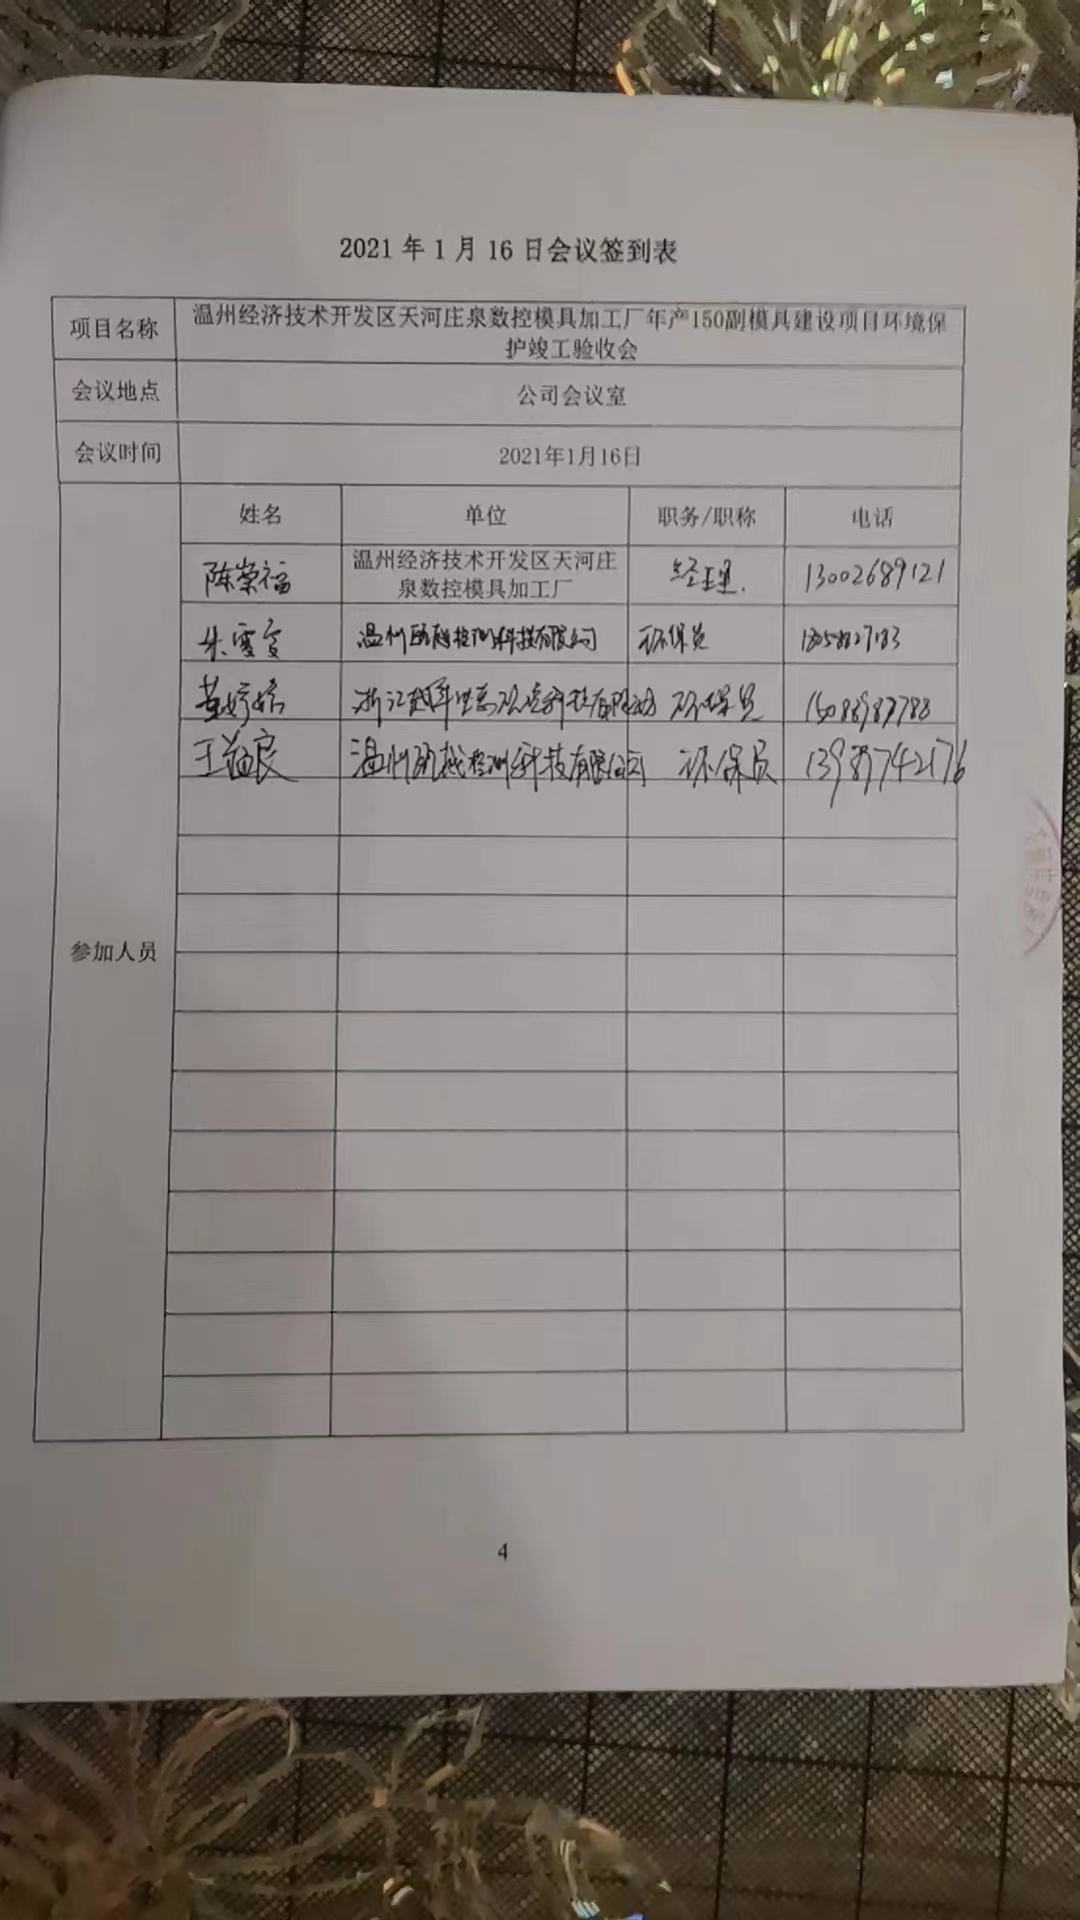 2021 年 1 月 16 日会议签到表
项目名称
温州经济技术开发区天河庄泉数控模具加工厂年产150副模具建设项目环境保
护竣工验收会
会议地点
公司会议室
会议时间
2021年1月16日
参加人员
姓名 单位 职务/职称 电话
陈崇福
温州经济技术开发区天河庄
泉数控模具加工厂
经理.
13002689121
朱雪 温州 检测科技有限公司 环保员
黄婷婷 浙江 科技有限公司 环保员 15088989788
王益良 温州 越检测科技有限公司 环保员 13989742176
4